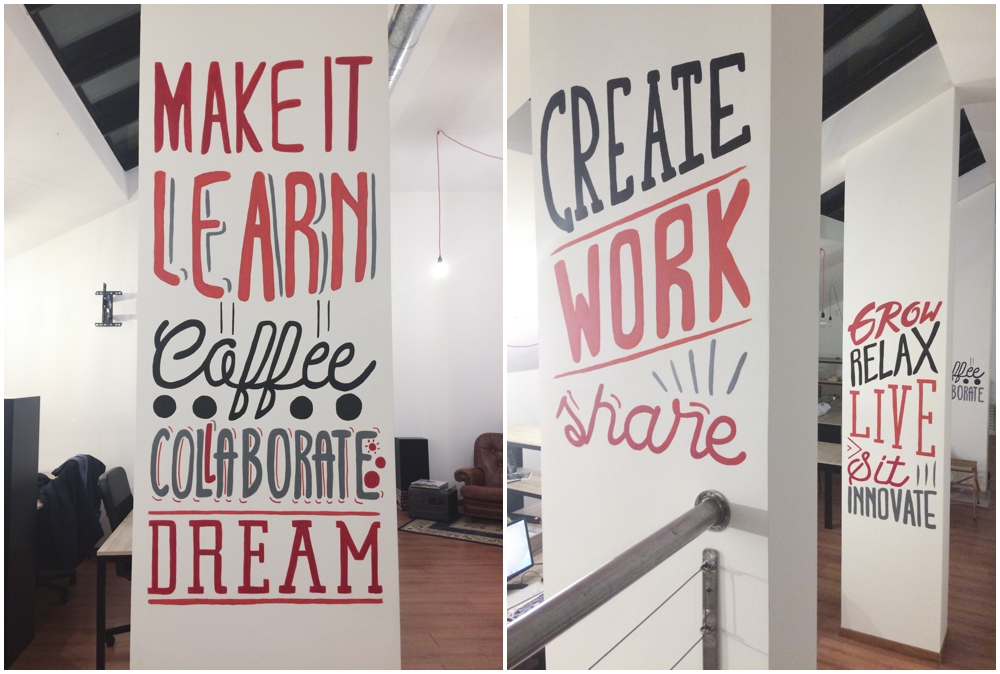 MAKE IT
LEARN
Coffee
COLLABORATE
DREAM
CREATE
WORK
share
GROW
RELAX
LIVE
Sit
INNOVATE
ffee
BORATE